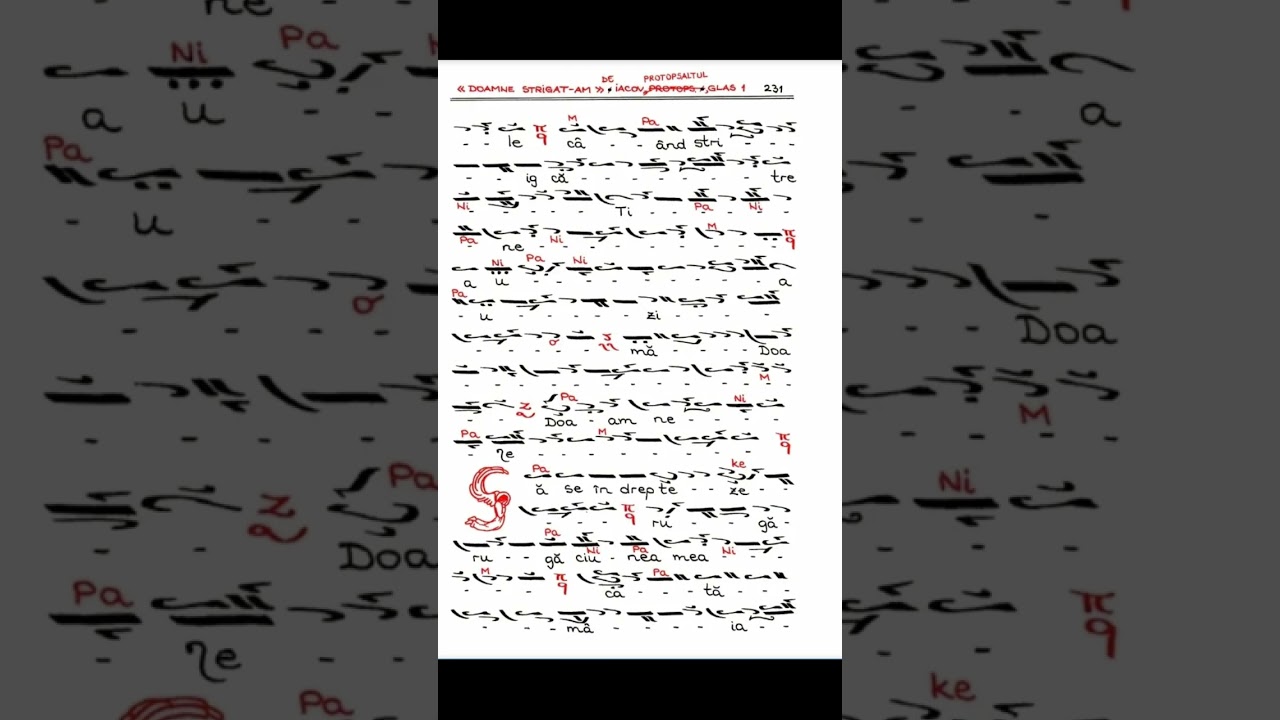 DE PROTOPSALTUL
« DOAMNE STRIGAT-AM » IACOV PROTOPS. GLAS 1 231
M Pa
- - le π q câ - - ând stri - - -
- - - - ig că - - - - - - - tre
Ni Pa Ni
- - - - - - Ti - - - - -
Pa Ni M π q
- - ne - - - - - - - -
Ni Pa Ni
a u - - - - - - - - a
Pa
- u - - - - - zi - - - -
- - - - - - mă - - - Doa
M
- - - - - - - - - - -
Z Pa Ni
- - Doa - am ne - - - -
Pa M π q
- ne - - - - - - - -
Pa ke
S ă se în drep te - - ze -
π q
- - - - ru - - - gă -
Pa Ni Pa Ni
ru - - gă ciu - nea mea - - -
M π q Pa
- - - - că - - - tă - - -
- - - - mâ - - - - ia - -